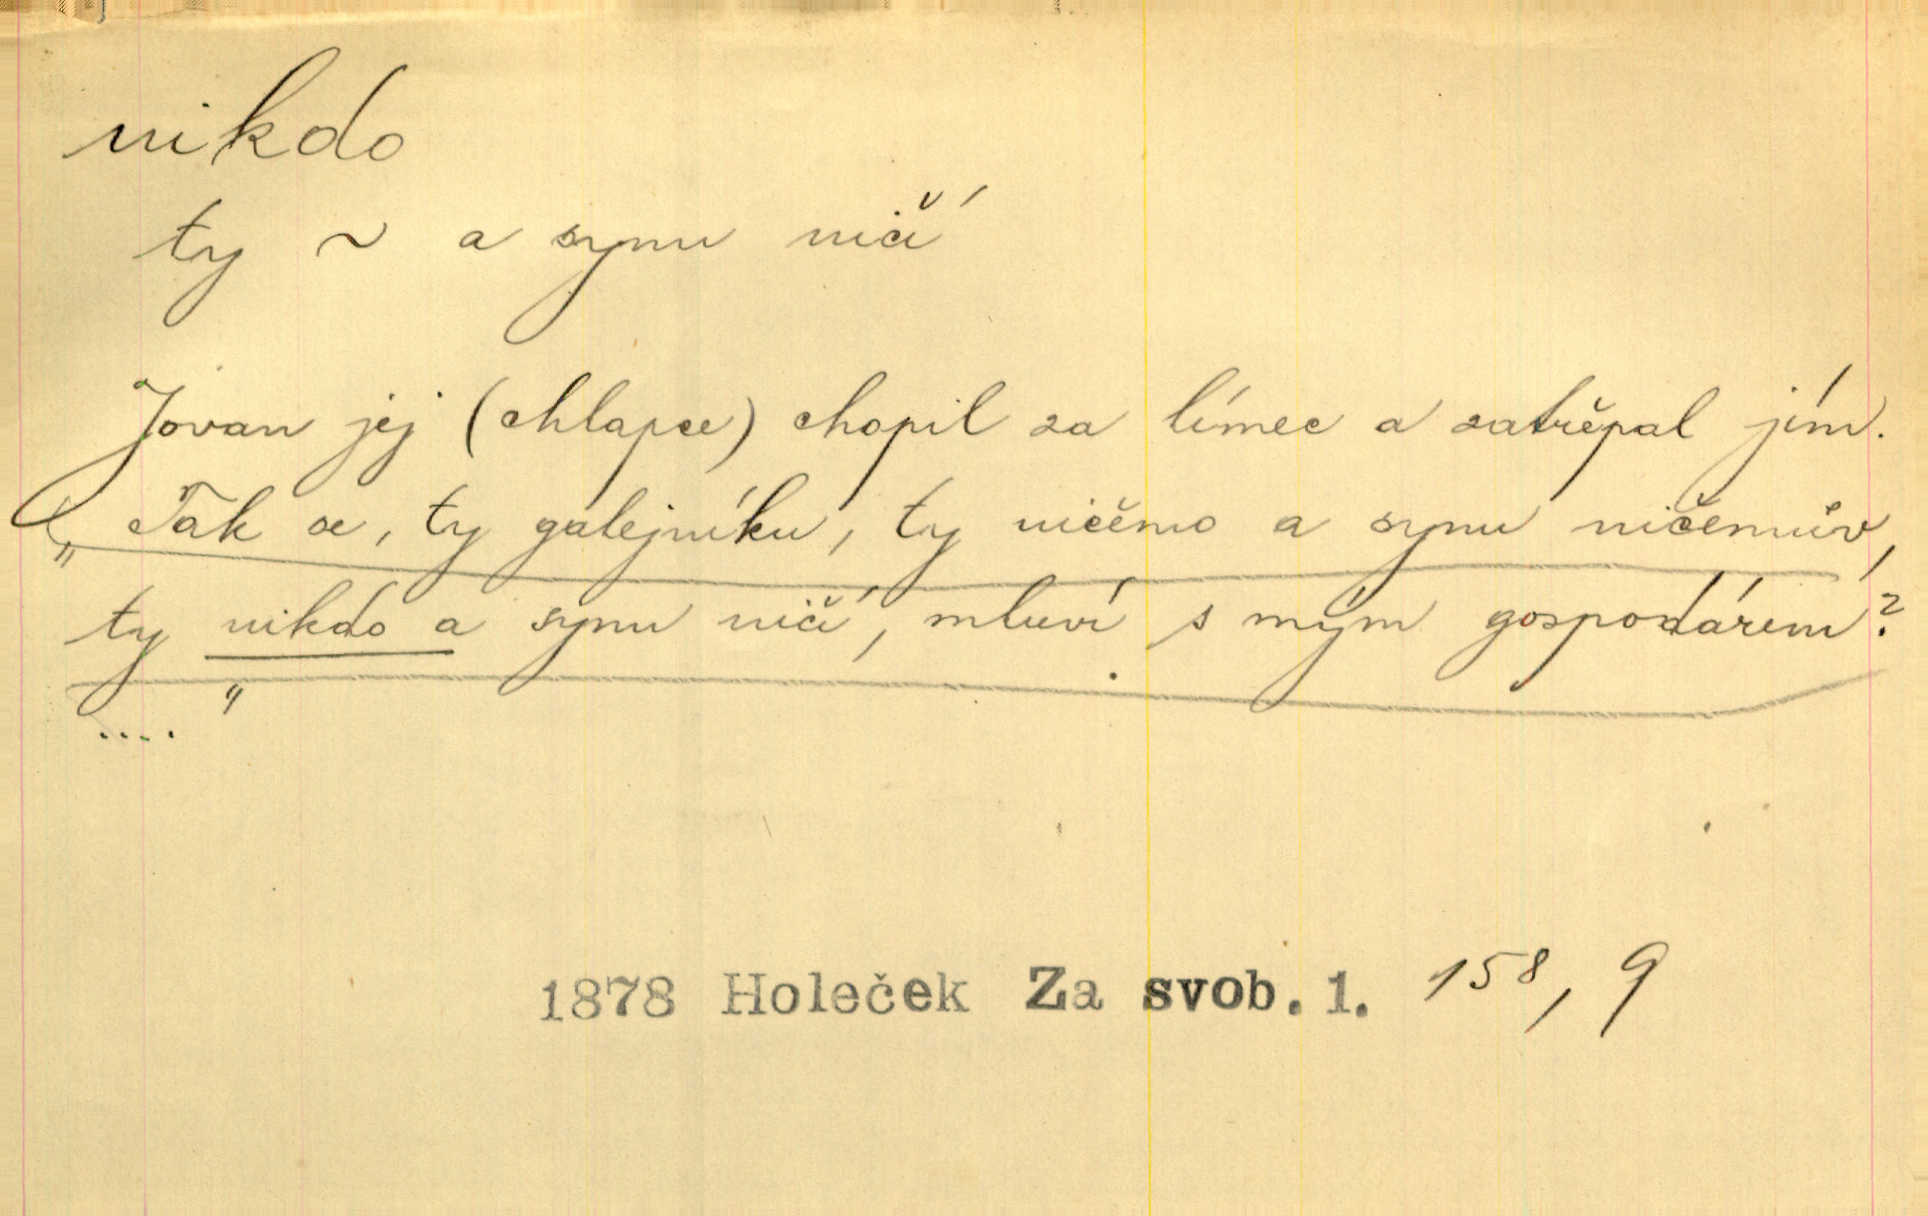 nikdo
ty ~ a synu ničí
Jovan jej (chlapce) chopil za límec a zatřěpal jím.
„Tak se, ty galejníku, ty ničěmo a synu ničemův,
ty nikdo a synu ničí, mluví s mým gospodárem?
...."
1878 Holeček Za svob. 1. 158, 9